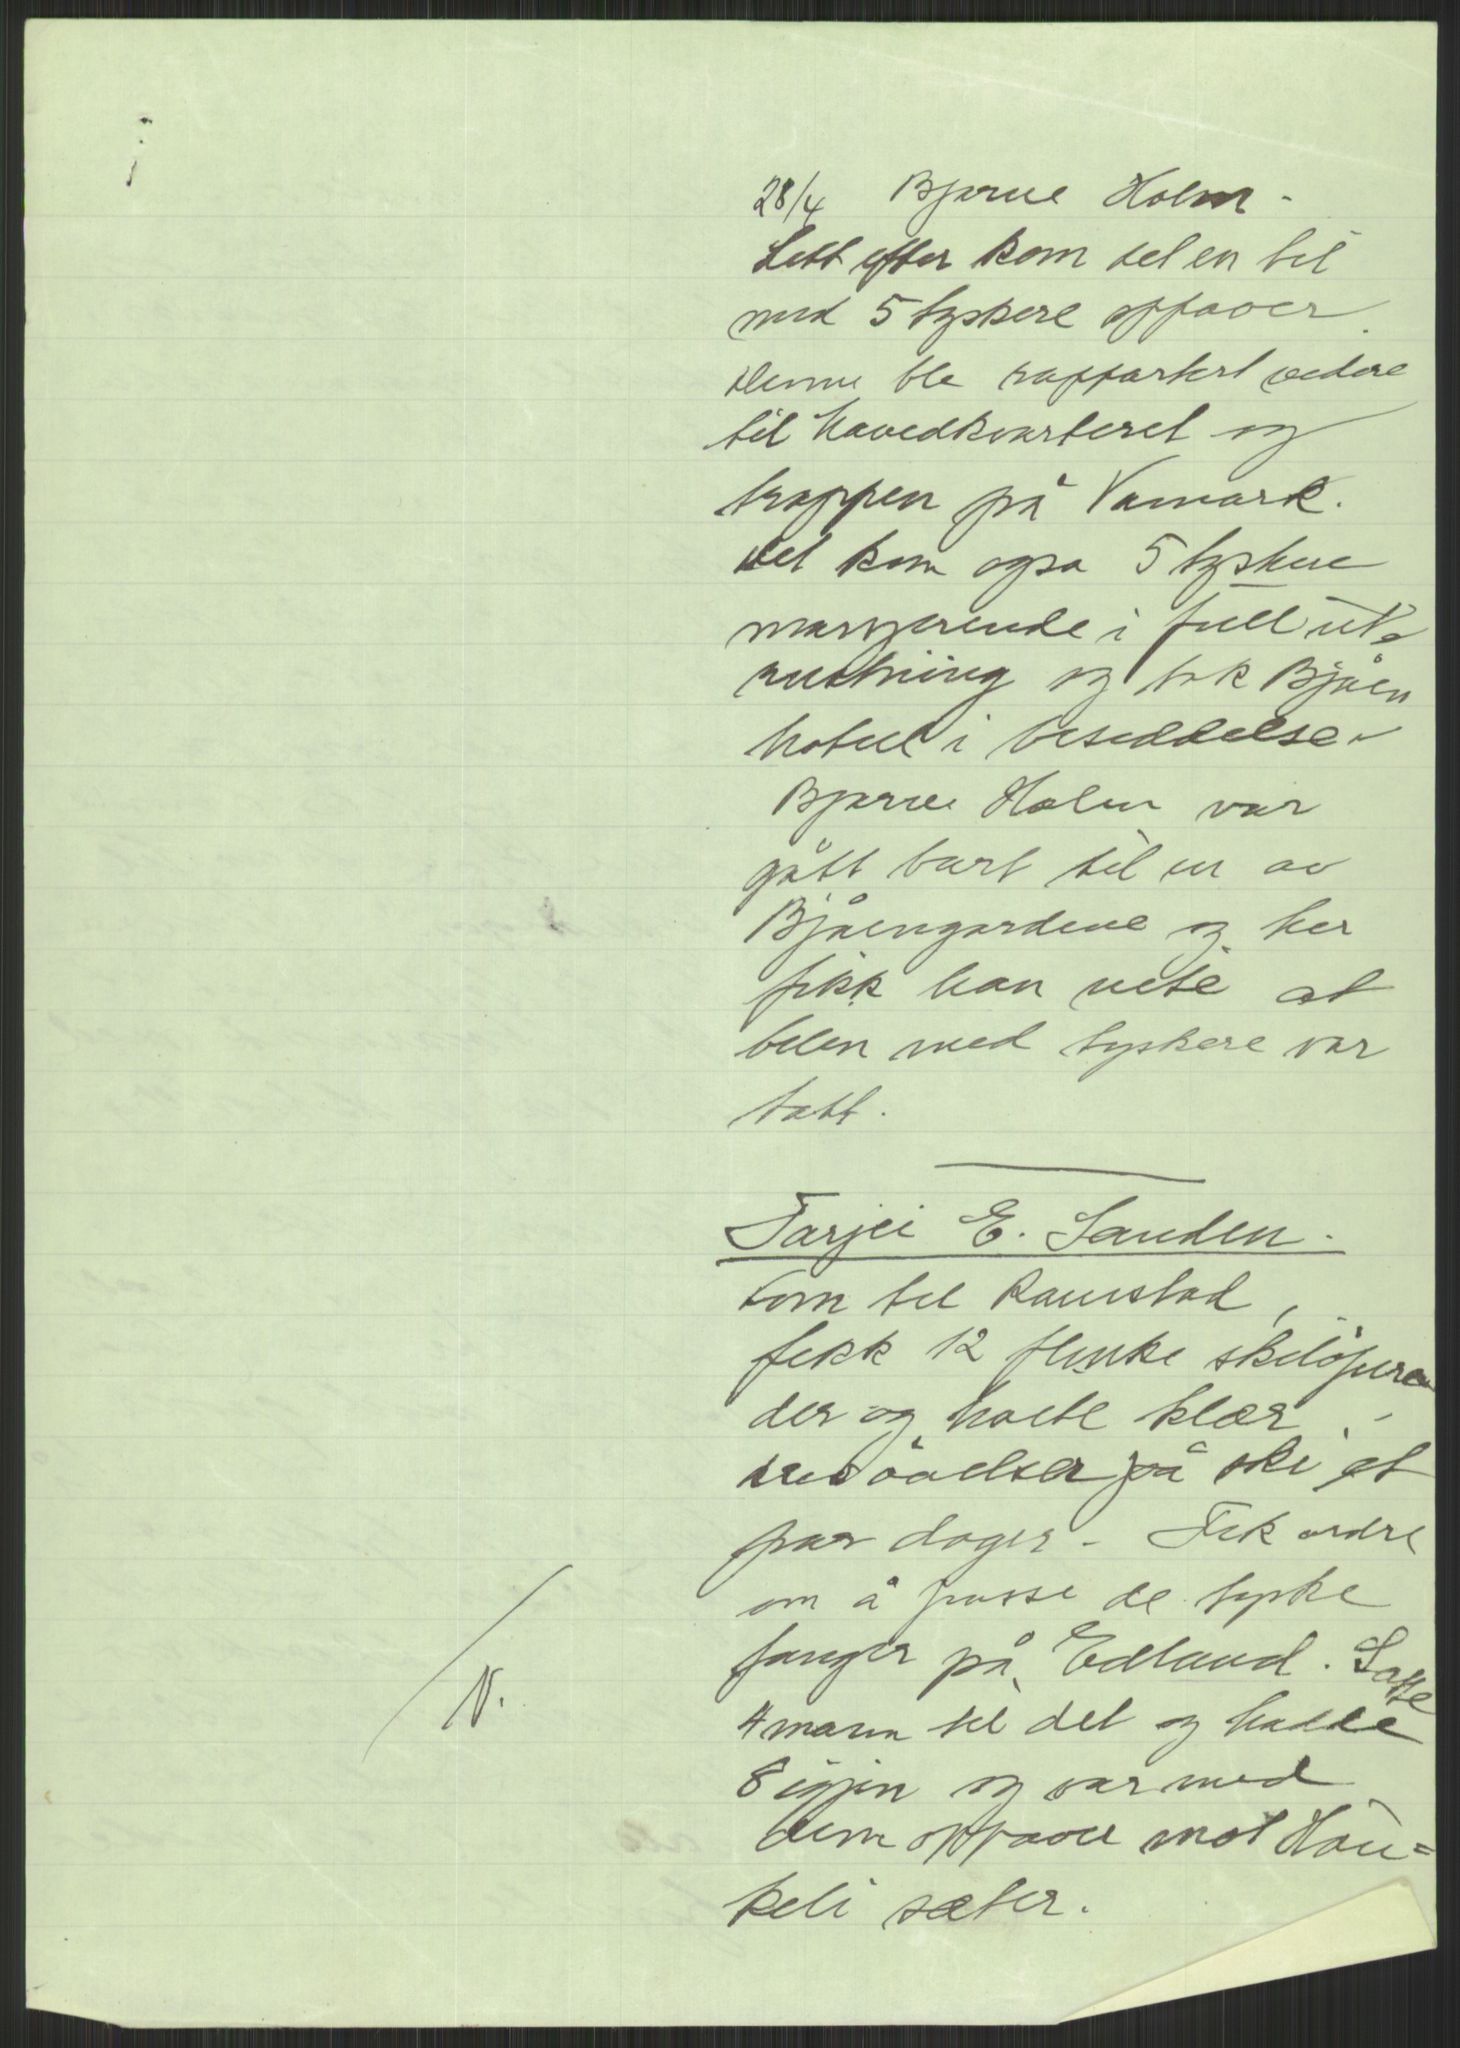 28/4 Bjarne Holm -
Lett efter kom det en bil
med 5 tyskere oppover.
Denne ble rapportert videre
til hovedkvarteret og
troppen på Vamark.
Det kom også 5 tyskere
marsjerende i full ut-
rustning og tok Bjåen
hotell i besiddelse.
Bjarne Holm var
gått bort til en av
Bjåengardene og her
fikk han vete at
bilen med tyskere var
tatt.
Tarjei E. Sanden.
Kom til Raustad,
fekk 12 flinke skiløpere
der og hvite klær,
drev øvelser på ski et
par dager - Fek ordre
om å passe de tyske
fanger på Edland. Satte
4 mann til det og hadde
8 igjen og var med
dem oppover mot Hau=
keli sæter.
N.